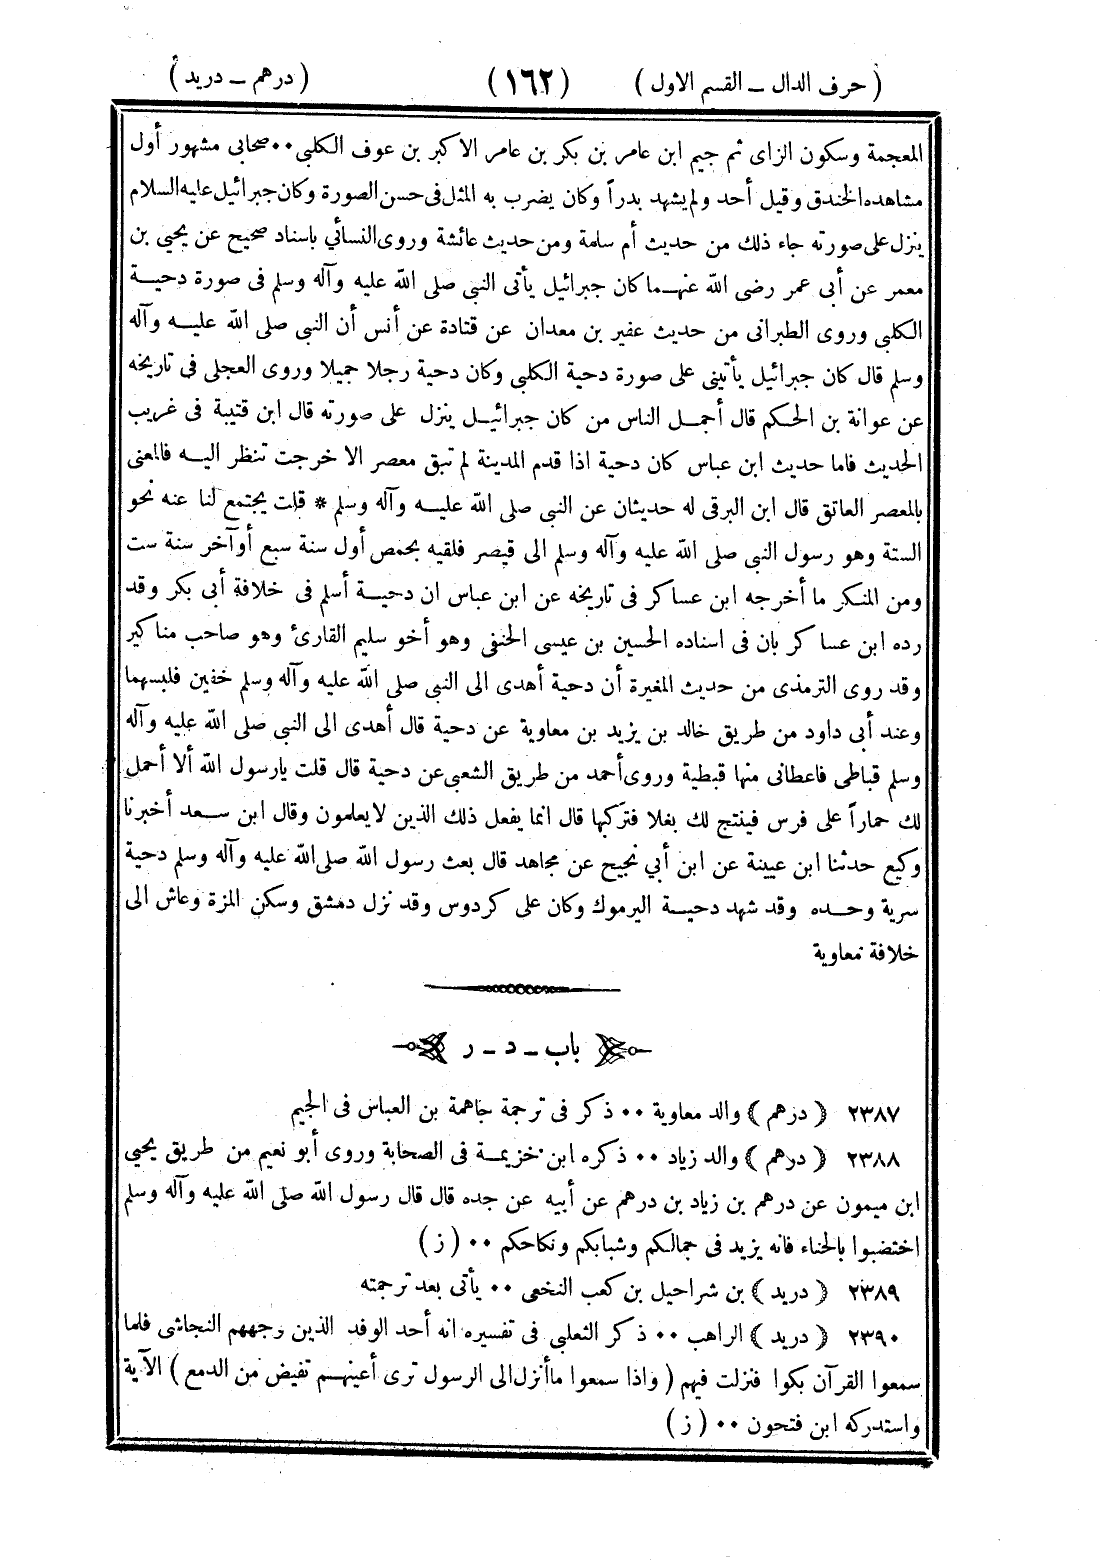 ( حرف الدال ــ القسم الاول ) ( ١٦٢ ) ( درهم ــ دريد )
المعجمة وسكون الزاى ثم جيم ابن عامر بن بكر بن عامر الاكبر بن عوف الكلبي ٠٠ صحابى مشهور أول
مشاهده الخندق وقيل أحد ولم يشهد بدراً وكان يضرب به المثل فى حسن الصورة وكان جبرائيل عليه السلام
ينزل على صورته جاء ذلك من حديث أم سلمة ومن حديث عائشة وروى النسائي باسناد صحيح عن يحيي بن
معمر عن أبى عمر رضى الله عنهـما كان جبرائيل يأتى النبي صلى الله عليه وآله وسلم فى صورة دحيـة
الكلبي وروى الطبرانى من حديث عفير بن معدان عن قتادة عن أنس أن النبي صلى الله عليــه وآله
وسلم قال كان جبرائيل يأتيني على صورة دحية الكلبي وكان دحية رجلا جميلا وروى العجلى فى تاريخه
عن عوانة بن الحـكم قال أجمـل الناس من كان جبرائيـل ينزل على صورته قال ابن قتيبة فى غريب
الحديث فاما حديث ابن عباس كان دحية اذا قدم المدينة لم تبق معصر الا خرجت تنظر اليــه فالمعنى
بالمعصر العاتق قال ابن البرقى له حديثان عن النبي صلى الله عليــه وآله وسلم * قلت يجتمع لنا عنه نحو
الستة وهو رسول النبي صلى الله عليه وآله وسلم الى قيصر فلقيه بحمص أول سنة سبع أوآخر سنة ست
ومن المنكر ما أخرجه ابن عساكر فى تاريخه عن ابن عباس ان دحيـة أسلم فى خلافة أبى بكر وقد
رده ابن عساكر بان فى اسناده الحسين بن عيسى الحنفى وهو أخو سليم القارئ وهو صاحب مناكير
وقد روى الترمذى من حديث المغيرة أن دحية أهدى الى النبي صلى الله عليه وآله وسلم خفين فلبسهما
وعند أبى داود من طريق خالد بن يزيد بن معاوية عن دحية قال أهدى الى النبي صلى الله عليه وآله
وسلم قباطى فاعطانى منها قبطية وروى أحمد من طريق الشعبي عن دحية قال قلت يارسول الله ألا أحمل
لك حماراً على فرس فينتج لك بغلا فتركبها قال انما يفعل ذلك الذين لايعلمون وقال ابن سـعد أخبرنا
وكيع حدثنا ابن عيينة عن ابن أبي نجيح عن مجاهد قال بعث رسول الله صلى الله عليه وآله وسلم دحية
سرية وحـده وقد شهد دحيـة اليرموك وكان على كردوس وقد نزل دمشق وسكن المزة وعاش الى
خلافة معاوية
باب ــ د ــ ر
٢٣٨٧ ( درهم ) والد معاوية ٠٠ ذكر فى ترجمة جاهمة بن العباس فى الجيم
٢٣٨٨ ( درهم ) والد زياد ٠٠ ذكره ابن خزيمـة فى الصحابة وروى أبو نعيم من طريق يحيي
ابن ميمون عن درهم بن زياد بن درهم عن أبيه عن جده قال قال رسول الله صلى الله عليه وآله وسلم
اختضبوا بالحناء فانه يزيد فى جمالكم وشبابكم ونكاحكم ٠٠ ( ز )
٢٣٨٩ ( دريد ) بن شراحيل بن كعب النخعى ٠٠ يأتى بعد ترجمته
٢٣٩٠ ( دريد ) الراهب ٠٠ ذكر الثعلبي فى تفسيره انه أحد الوفد الذين وجههم النجاشى فلما
سمعوا القرآن بكوا فنزلت فيهم ( واذا سمعوا ماأنزل الى الرسول ترى أعينهـم تفيض من الدمع ) الآية
واستدركه ابن فتحون ٠٠ ( ز )